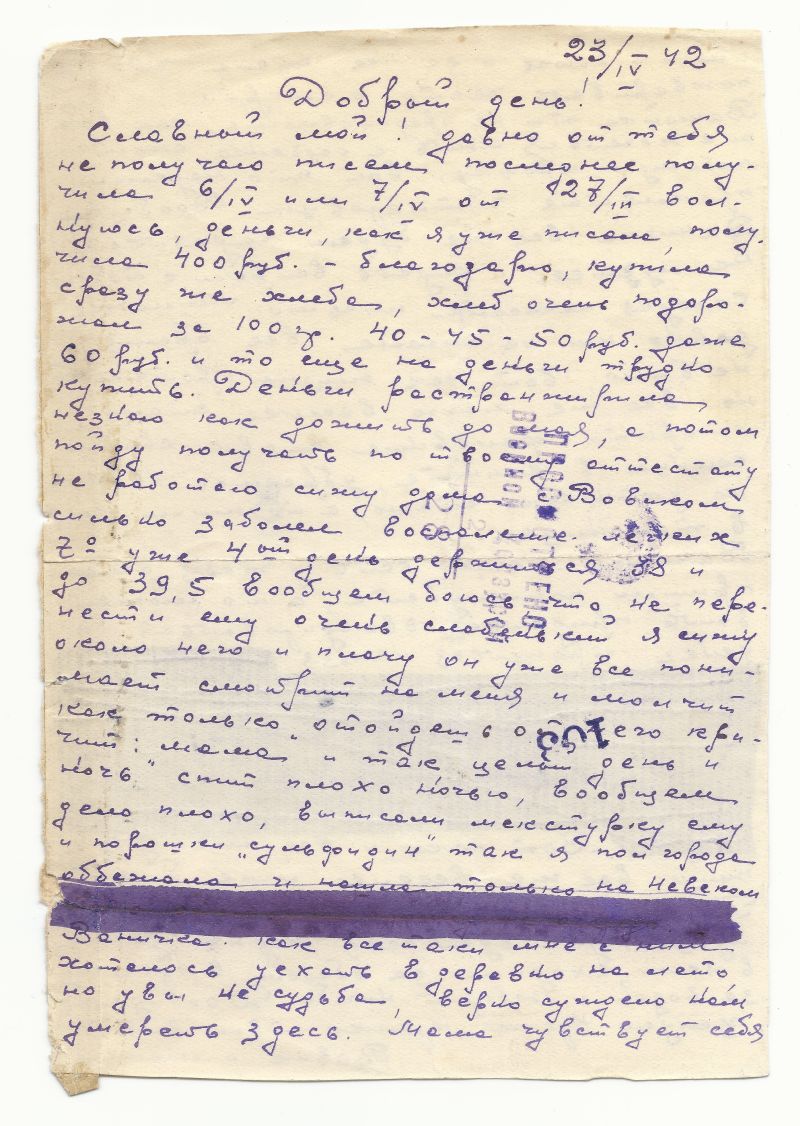 23/IV 42
Добрый день!
Славный мой! давно от тебя
не получаю писем последнее полу-
чила 6/IV или 7/IV от 27/III вол-
нуюсь, деньги, как я уже писала, полу-
чила 400 руб. – благодарю, купила
сразу же хлеба, хлеб очень подоро-
жал за 100 гр. 40 - 45 - 50 руб. даже
60 руб. и то еще на деньги трудно
купить. Деньги растранжирила
незнаю как дожить до мая, а потом
пойду получать по твоему аттестату
не работаю сижу дома с Вовиком
сильно заболел воспаление легких
7° уже 4ый день держится 38 и
до 39,5 вообщем боюсь что не пере-
нести ему очень слабенький я сижу
около него и плачу он уже все пони-
мает смотрит на меня и молчит
как только отойдешь от него кри-
чит: "мама" и так целый день и
ночь спит плохо ночью, вообщем
дело плохо, выписали микстурку ему
и порошки "сульфидин" так я пол города
оббежала и нашла только на Невском
Ваничка. как все таки мне с ним
хотелось уехать в деревню на лето
но увы не судьба, верно суждено нам
умереть здесь. Мама чувствует себя
ПРОСМОТРЕНО
ВОЕННОЙ ЦЕНЗУРОЙ
103